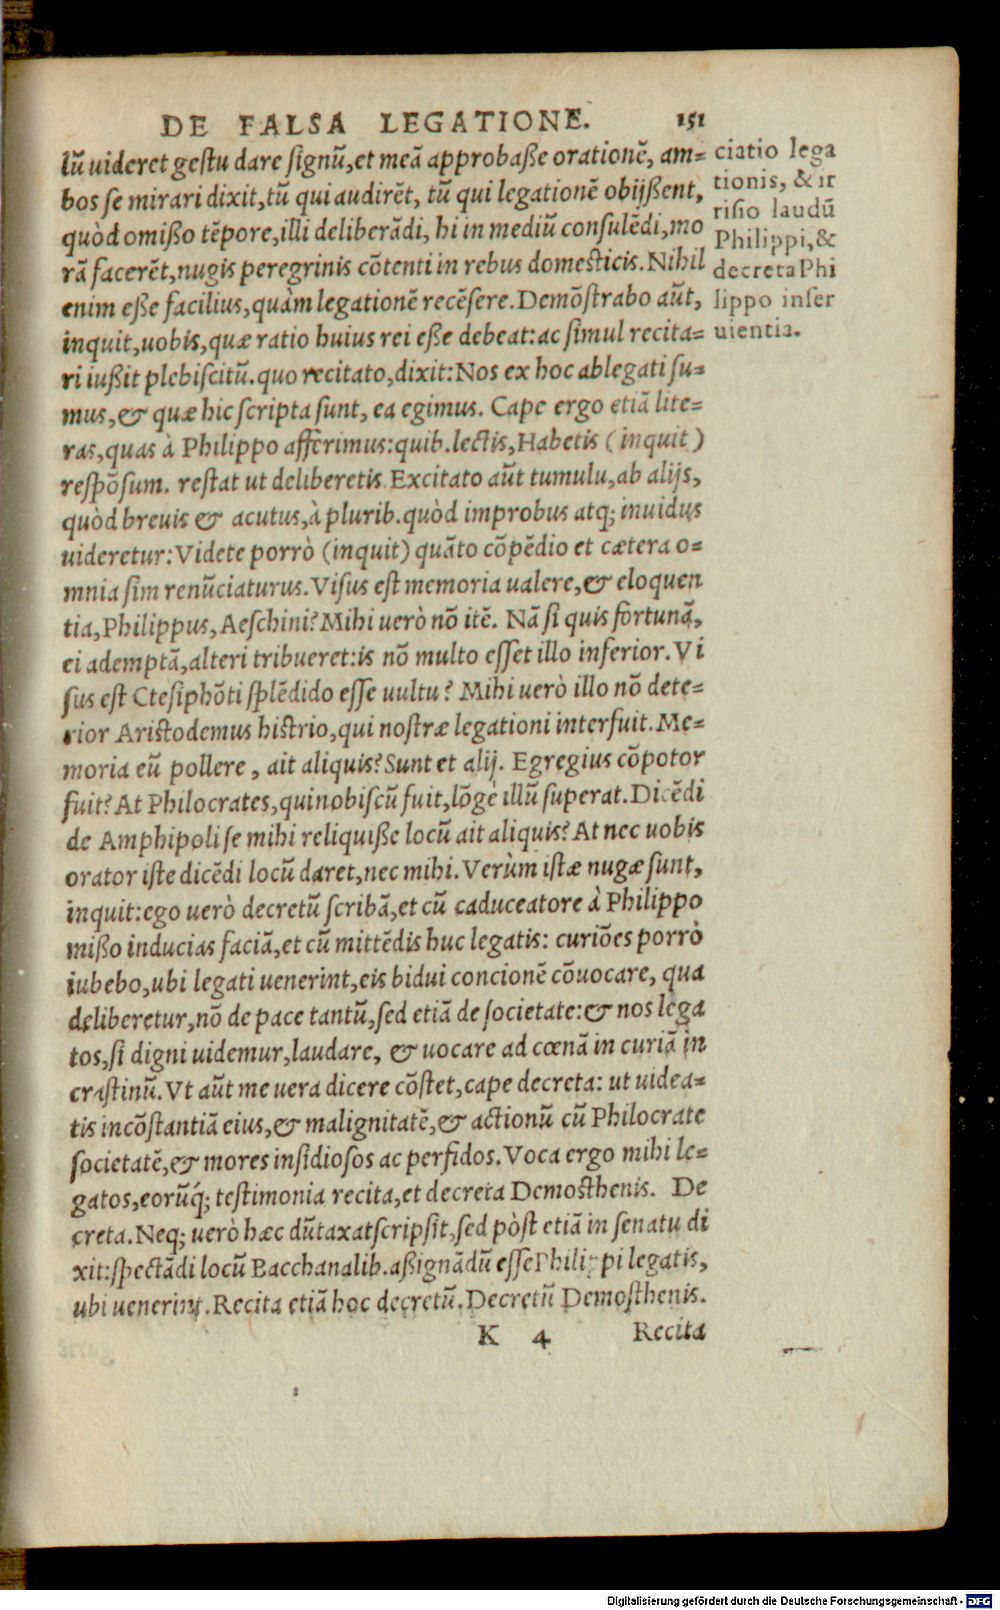 DE FALSA LEGATIONE. 151
lũ uideret gestu dare signũ, et meã approbaße orationẽ, am=
bos se mirari dixit, tũ qui audirẽt, tũ qui legationẽ obijßent,
quòd omißo tẽpore, illi deliberãdi, hi in mediũ consulẽdi, mo
rã facerẽt, nugis peregrinis cõtenti in rebus domesticis. Nihil
enim eße facilius, quàm legationẽ recẽsere. Demõstrabo aũt,
inquit, uobis, quæ ratio huius rei eße debeat: ac simul recita=
ri iußit plebiscitũ. quo recitato, dixit: Nos ex hoc ablegati su=
mus, & quæ hic scripta sunt, ea egimus. Cape ergo etiã lite=
ras, quas à Philippo afferimus: quib. lectis, Habetis (inquit)
respõsum. restat ut deliberetis. Excitato aũt tumulu, ab alijs,
quòd breuis & acutus, à plurib. quòd improbus atq; inuidus
uideretur: Videte porrò (inquit) quãto cõpẽdio et cætera o=
mnia sim renũciaturus. Visus est memoria ualere, & eloquen
tia, Philippus, Aeschini? Mihi uerò nõ itẽ. Nã si quis fortunã,
ei ademptã, alteri tribueret: is nõ multo esset illo inferior. Vi
sus est Ctesiphõti splẽdido esse uultu? Mihi uerò illo nõ dete=
rior Aristodemus histrio, qui nostræ legationi interfuit. Me=
moria eũ pollere, ait aliquis? Sunt et alij. Egregius cõpotor
fuit? At Philocrates, qui nobiscũ fuit, lõgè illũ superat. Dicẽdi
de Amphipoli se mihi reliquiße locũ ait aliquis? At nec uobis
orator iste dicẽdi locũ daret, nec mihi. Verùm istæ nugæ sunt,
inquit: ego uerò decretũ scribã, et cũ caduceatore à Philippo
mißo inducias faciã, et cũ mittẽdis huc legatis: curiões porrò
iubebo, ubi legati uenerint, eis bidui concionẽ cõuocare, qua
deliberetur, nõ de pace tantũ, sed etiã de societate: & nos lega
tos, si digni uidemur, laudare, & uocare ad cœnã in curiã in
crastinũ. Vt aũt me uera dicere cõstet, cape decreta: ut uidea=
tis incõstantiã eius, & malignitatẽ, & actionũ cũ Philocrate
societatẽ, & mores insidiosos ac perfidos. Voca ergo mihi le=
gatos, eorũq́; testimonia recita, et decreta Demosthenis. De
creta. Neq; uerò hæc dũtaxat scripsit, sed pòst etiã in senatu di
xit: spectãdi locũ Bacchanalib. aßignãdũ esse Philippi legatis,
ubi uenerint. Recita etiã hoc decretũ. Decretũ Demosthenis.
K 4 Recita
ciatio lega
tionis, & ir
risio laudũ
Philippi, &
decreta Phi
lippo inser
uientia.
Digitalisierung gefördert durch die Deutsche Forschungsgemeinschaft - DFG